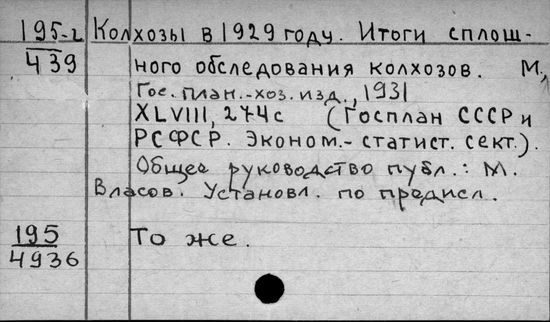 195-2 Колхозы в 1929 году. Итоги сплош-
439 ного обследования колхозов. М.,
Гос. план.-хоз. изд., 1931
XLVIII, 274с (Госплан СССР и
РСФСР. Эконом.-статист. сект.).
Общее руководство публ.: М.
Власов. Установл. по предисл.
195 То же.
4936